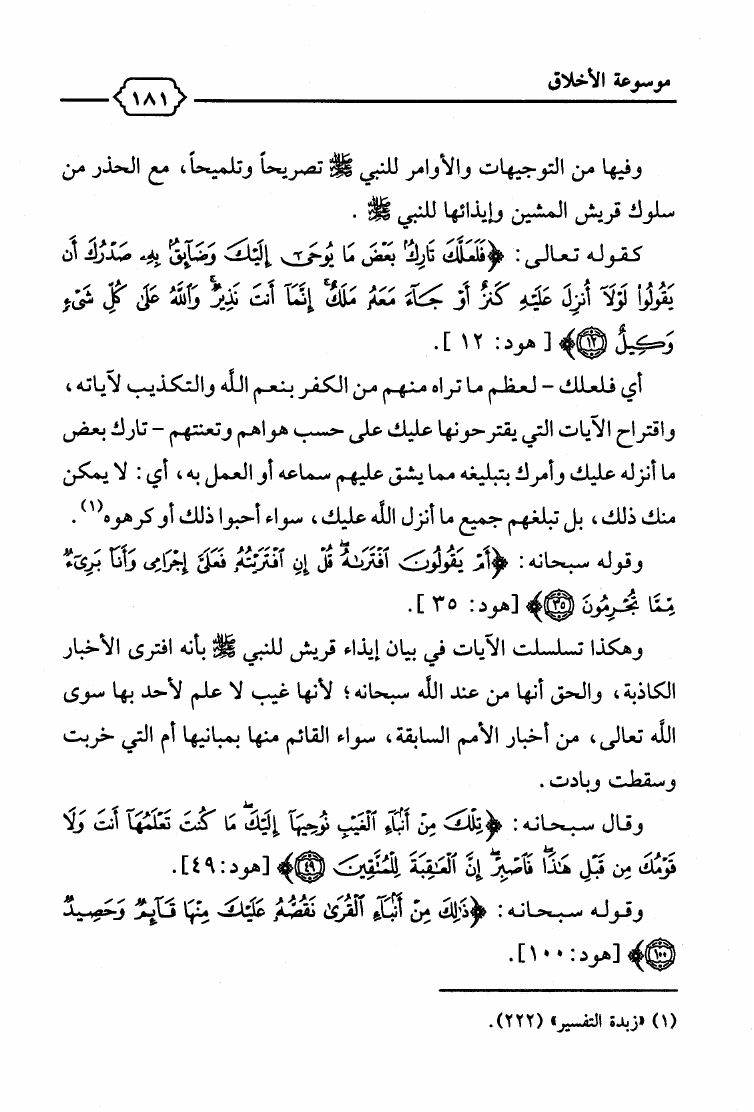 موسوعة الأخلاق
١٨١
وفيها من التوجيهات والأوامر للنبي ﷺ تصريحاً وتلميحاً، مع الحذر من
سلوك قريش المشين وإيذائها للنبي ﷺ .
كقوله تعالى: ﴿فَلَعَلَّكَ تَارِكٌۢ بَعْضَ مَا يُوحَىٰٓ إِلَيْكَ وَضَآئِقٌۢ بِهِۦ صَدْرُكَ أَن
يَقُولُوا۟ لَوْلَآ أُنزِلَ عَلَيْهِ كَنزٌ أَوْ جَآءَ مَعَهُۥ مَلَكٌ ۚ إِنَّمَآ أَنتَ نَذِيرٌ ۚ وَٱللَّهُ عَلَىٰ كُلِّ شَىْءٍ
وَكِيلٌ ١٢﴾ [هود: ١٢].
أي فلعلك - لعظم ما تراه منهم من الكفر بنعم الله والتكذيب لآياته،
واقتراح الآيات التي يقترحونها عليك على حسب هواهم وتعنتهم - تارك بعض
ما أنزله عليك وأمرك بتبليغه مما يشق عليهم سماعه أو العمل به، أي: لا يمكن
منك ذلك، بل تبلغهم جميع ما أنزل الله عليك، سواء أحبوا ذلك أو كرهوه(١).
وقوله سبحانه: ﴿أَمْ يَقُولُونَ ٱفْتَرَىٰهُ ۖ قُلْ إِنِ ٱفْتَرَيْتُهُۥ فَعَلَىَّ إِجْرَامِى وَأَنَا۠ بَرِىٓءٌ
مِّمَّا تُجْرِمُونَ ٣٥﴾ [هود: ٣٥].
وهكذا تسلسلت الآيات في بيان إيذاء قريش للنبي ﷺ بأنه افترى الأخبار
الكاذبة، والحق أنها من عند الله سبحانه؛ لأنها غيب لا علم لأحد بها سوى
الله تعالى، من أخبار الأمم السابقة، سواء القائم منها بمبانيها أم التي خربت
وسقطت وبادت.
وقال سبحانه: ﴿تِلْكَ مِنْ أَنۢبَآءِ ٱلْغَيْبِ نُوحِيهَآ إِلَيْكَ ۖ مَا كُنتَ تَعْلَمُهَآ أَنتَ وَلَا
قَوْمُكَ مِن قَبْلِ هَـٰذَا ۖ فَٱصْبِرْ ۖ إِنَّ ٱلْعَـٰقِبَةَ لِلْمُتَّقِينَ ٤٩﴾ [هود:٤٩].
وقوله سبحانه: ﴿ذَٰلِكَ مِنْ أَنۢبَآءِ ٱلْقُرَىٰ نَقُصُّهُۥ عَلَيْكَ ۖ مِنْهَا قَآئِمٌ وَحَصِيدٌ
١٠٠﴾ [هود: ١٠٠].
(١) «زبدة التفسير» (٢٢٢).